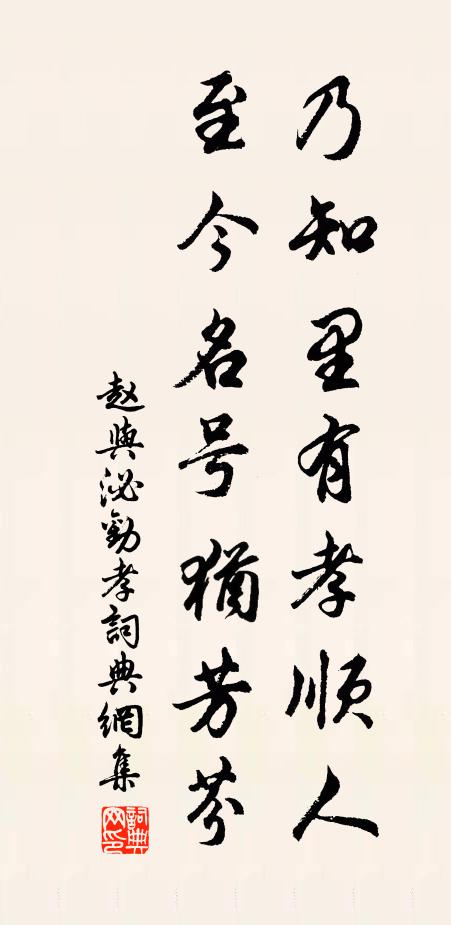 乃知里有孝顺人
至今名号犹芳芬
赵与泌劝孝词典网集
词典网印